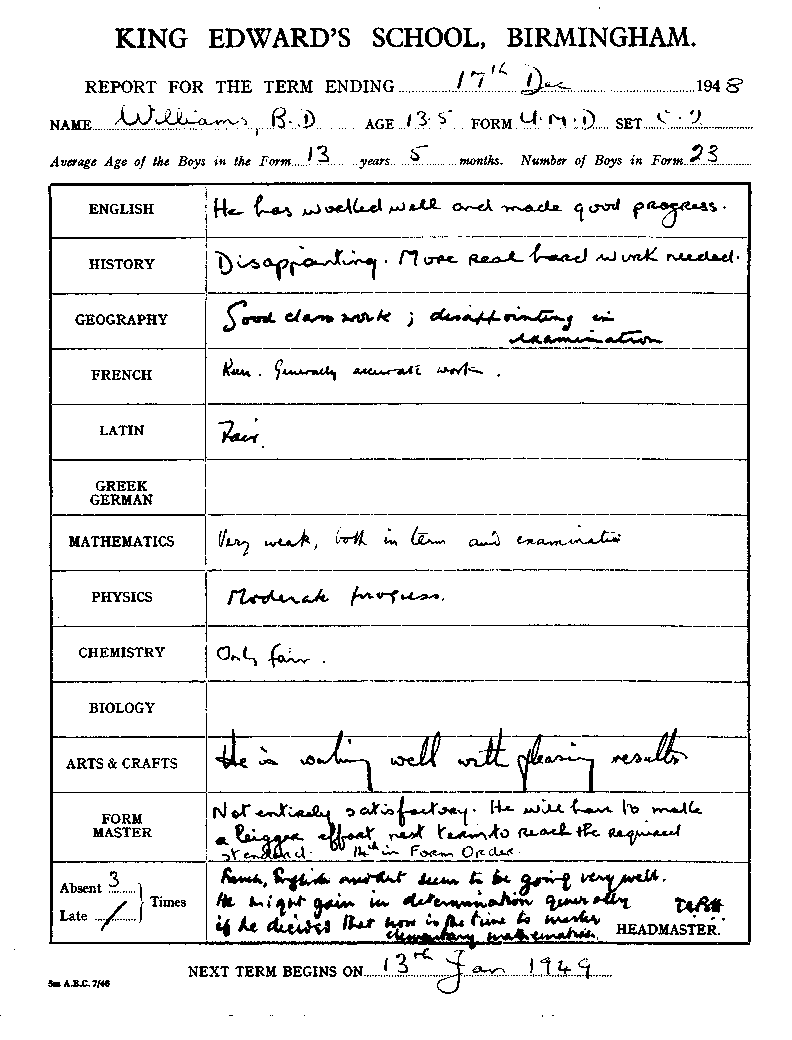 KING EDWARD'S SCHOOL, BIRMINGHAM.
REPORT FOR THE TERM ENDING 17th Dec 1948
NAME Williams, B.D AGE 13.5 FORM U.M.D SET
Average Age of the Boys in the Form 13 years 5 months. Number of Boys in Form 23
ENGLISH He has worked well and made good progress.
HISTORY Disappointing. More real hard work needed.
GEOGRAPHY Good class work ; disappointing in
examination
FRENCH Keen. Generally accurate work.
LATIN Fair.
GREEK
GERMAN
MATHEMATICS Very weak, both in term and examination
PHYSICS Moderate progress.
CHEMISTRY Only fair.
BIOLOGY
ARTS & CRAFTS He is working well with pleasing results
FORM
MASTER
Not entirely satisfactory. He will have to make
a bigger effort next term to reach the required
standard. 14th in Form Order.
Absent 3
Late /
Times
French, English and art seem to be going very well.
He might gain in determination generally
if he decides that now is the time to master
elementary mathematics.
HEADMASTER.
NEXT TERM BEGINS ON 13th Jan 1949
5m A.B.C. 7/46